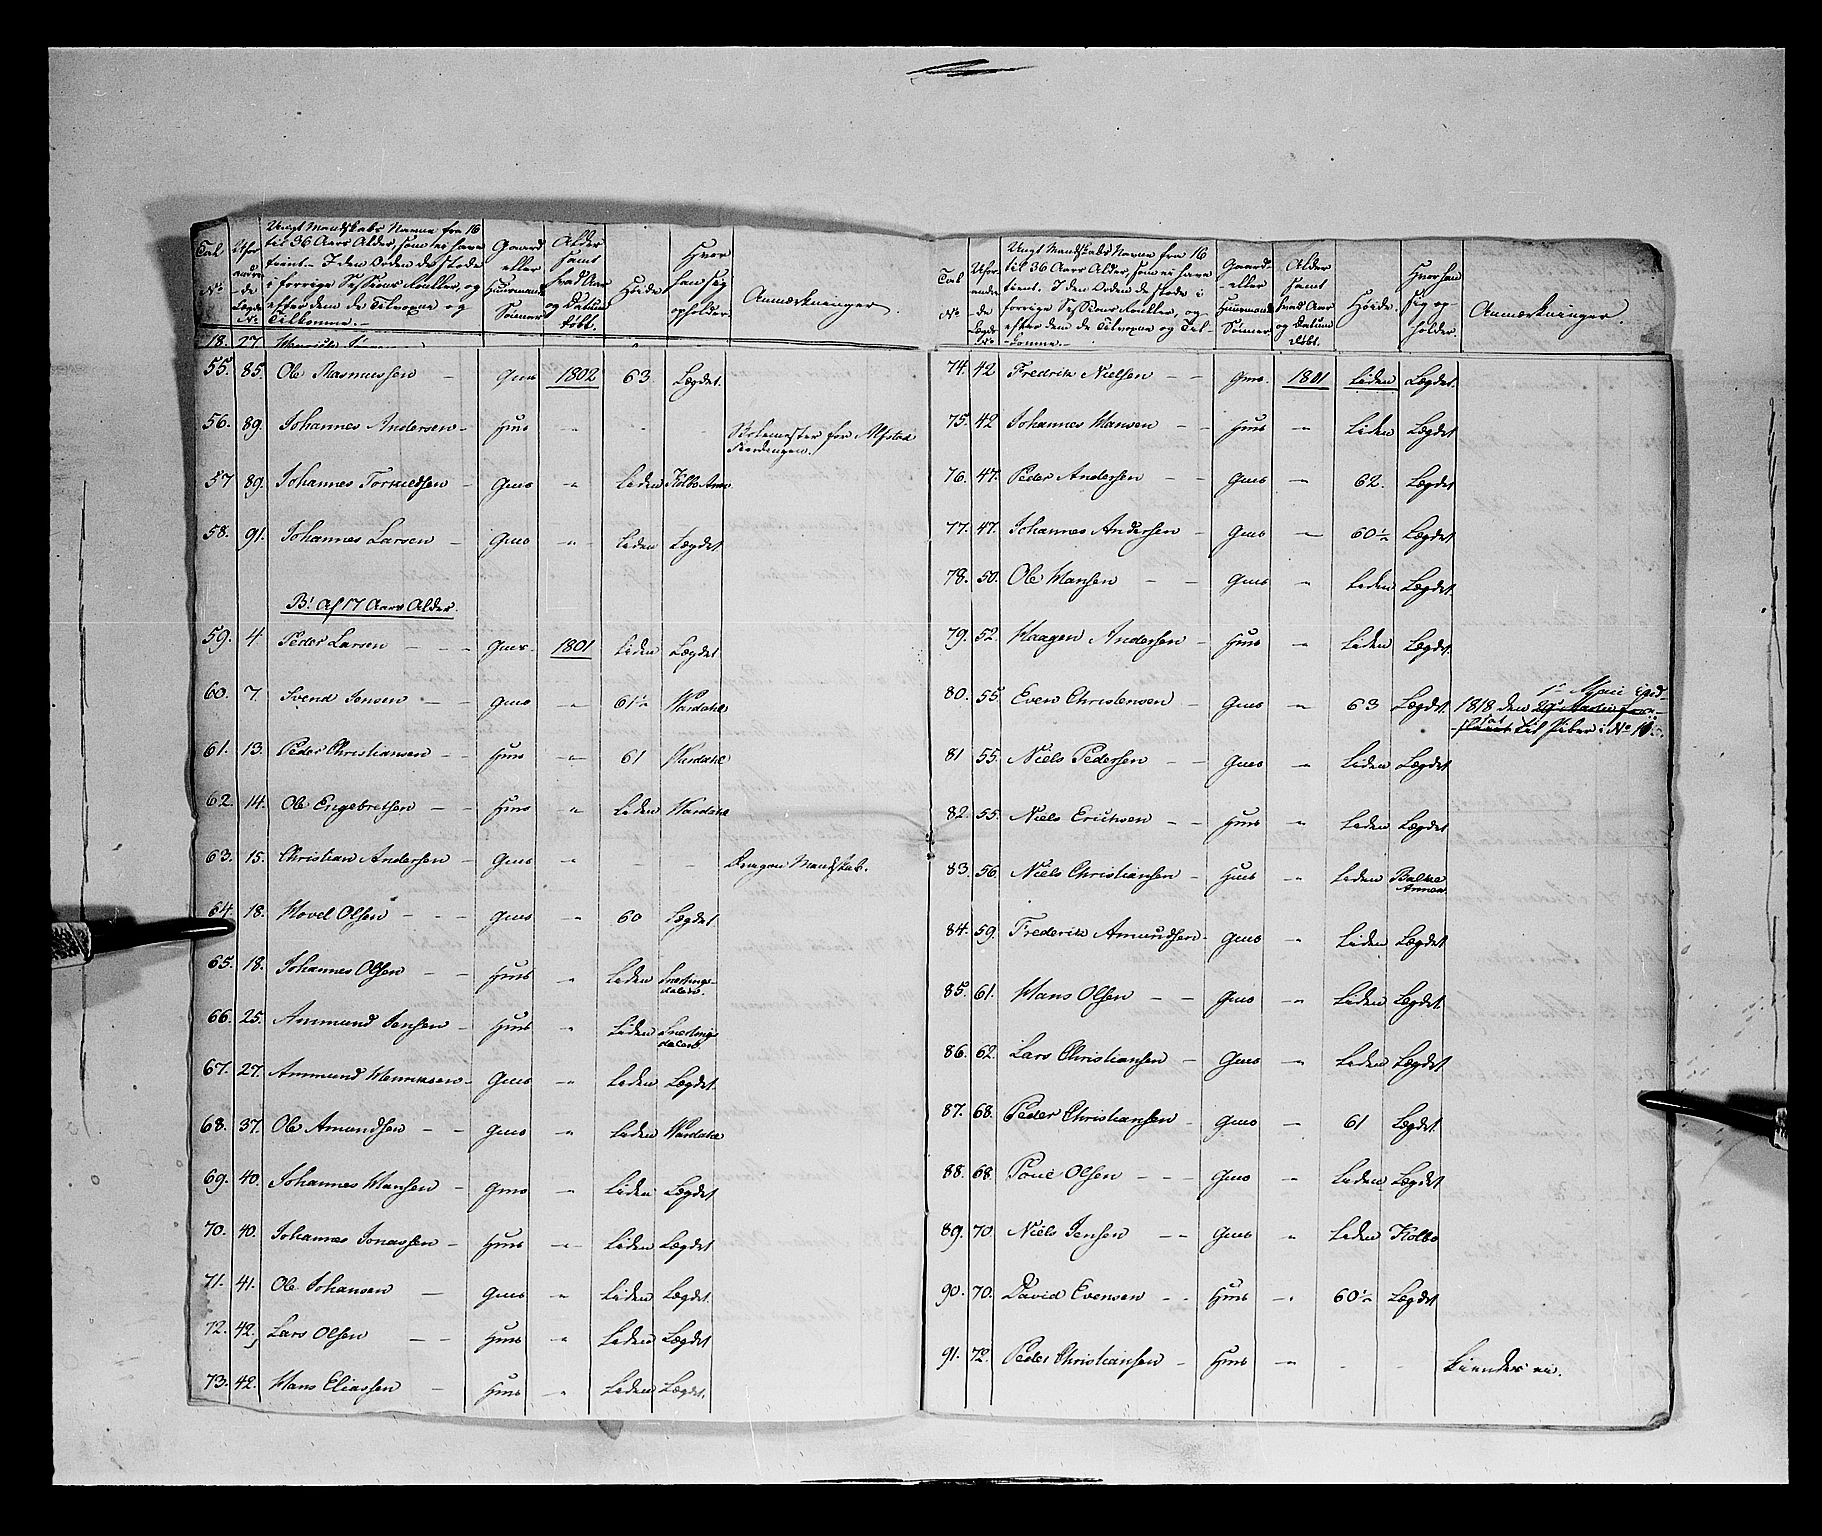 Tal No
Ufor andrede Lægds No
Ungt Mandskabs Navne fra 16
til 36 Aars Alder, som ei have
tient. I den Orden de stode
i forrige Sessions Ruller, og
efter dem de Tilvoxne og
Tilkomne.
Gaard eller Huusmands Sønner
Alder samt hvad Aar og Datum døbt.
Høide
Hvor han sig opholder.
Anmærkninger.
18. 27.
55. 85. Ole Rasmussen — Gaas 1802 63 Lægdet.
56. 89. Johannes Andersen — Huus " - -
Skolemester for Alfstad
57 89. Johannes Torkildsen — Gaas " Liden Kolbo Anex
58. 91. Johannes Larsen — Gaas " Liden Lægdet
B! Af 17 Aars Alder.
59. 4. Peder Larsen — — Gaas 1801 Liden Lægdet
60. 7. Svend Jensen — Gaas " 61½ Wardahl
61. 13. Peder Christiansen — Huus " 61 Wardahl
62. 14. Ole Engebretsen — — Huus " Liden Wardahl
63. 15. Christian Andersen — Gaas " - - Dragon Mandskab.
64. 18. Hovel Olsen — — — Gaas " 60 Lægdet
65. 18. Johannes Olsen — — Huus " Liden Snertingdalens.
66. 25. Ammund Jensen — Huus " Liden Snertingdalens.
67. 27. Ammund Henriksen — Gaas " Liden Lægdet
68. 37. Ole Amundsen — — Gaas " Liden Wardahl
69. 40. Johannes Hansen — Gaas " Liden Lægdet
70. 40. Johannes Jonassen — Huus " Liden Lægdet
71. 41. Ole Johansen — Gaas " Liden Lægdet.
72. 42. Lars Olsen — — Huus " Liden Lægdet
73. 42. Hans Eliassen — Huus " Liden Lægdet.
Tal No
Ufor andrede Lægds No
Ungt Mandskabs Navne fra 16
til 36 Aars Alder, som ei have
tient. I den Orden de stode i
forrige Sessions Ruller, og
efter dem de Tilvoxne og Tilkomne.
Gaard eller Huusmands Sønner
Alder samt hvad Aar og Datum døbt.
Høide.
Hvor han sig opholder.
Anmærkninger.
74. 42 Fredrik Nielsen — — Gaas. 1801 Liden Lægdet.
75. 42 Johannes Hansen — — Huus " Liden Lægdet
76. 47. Peder Andersen — — Gaas " 62. Lægdet
77. 47. Johannes Andersen — Gaas " 60½ Lægdet
78. 50. Ole Hansen — — Gaas " Liden Lægdet.
79. 52. Haagen Andersen — Huus " Liden Lægdet.
80. 55. Even Christensen — Gaas " 63 Lægdet.
1818 den
til Piber i No
81 55. Niels Pedersen — — Gaas " Liden Lægdet
82. 55. Niels Ericksen — — Huus " Liden Lægdet
83. 56. Niels Christiansen — Huus " Liden Balke Annex.
84. 59. Frederik Amundsen — Gaas " Liden Lægdet
85. 61. Hans Olsen — — Gaas " Liden Lægdet
86. 62. Lars Christiansen — Gaas " Liden Lægdet
87. 68. Peder Christiansen — Gaas — 61 Lægdet
88. 68. Poul Olsen — — — Gaas " Liden Lægdet
89. 70. Niels Jensen — — Gaas " Liden Kolbo
90. 70. David Evensen — — Huus " 60½ Lægdet
91. 72. Peder Christiansen — Huus " - - kiendes ei.